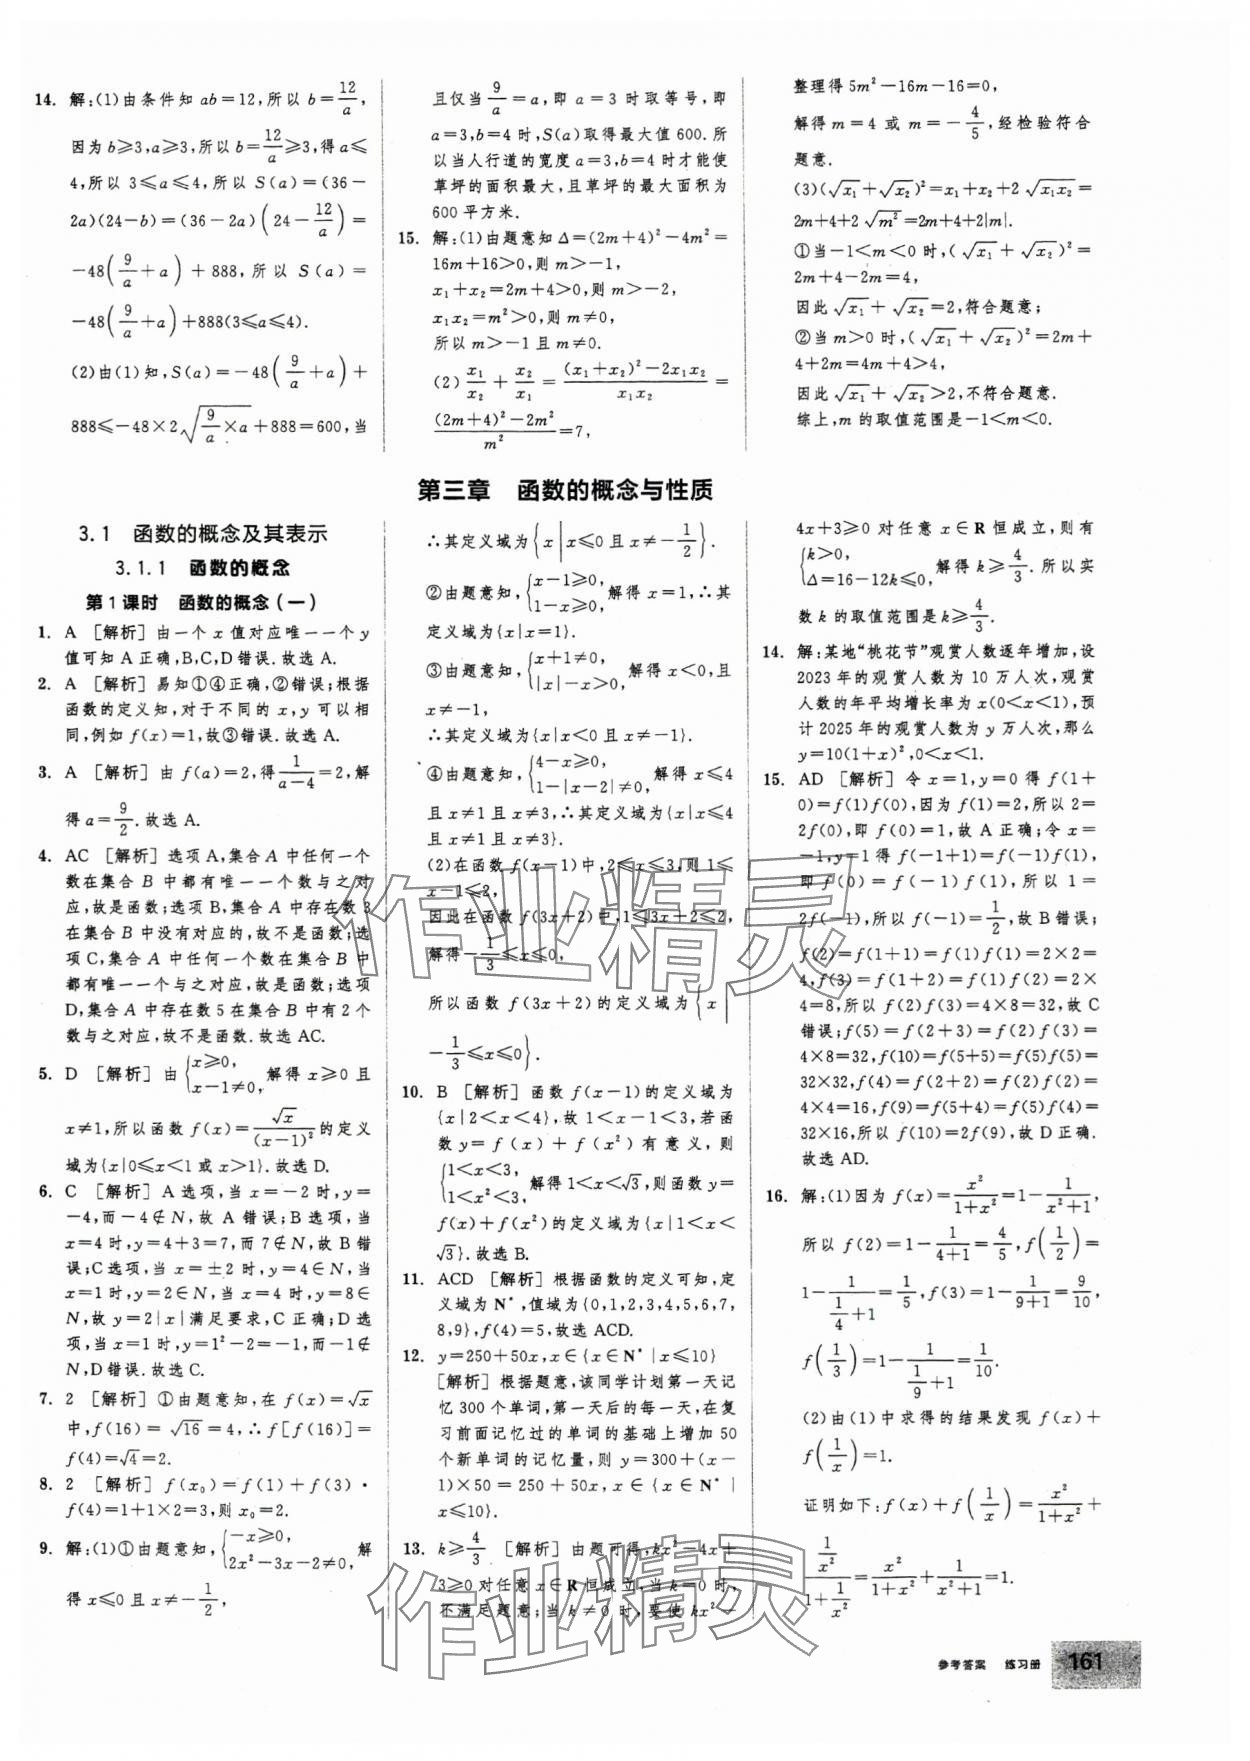 14. 解:(1)由条件知 ab=12,所以 b=12/a,
因为 b≥3,a≥3,所以 b=12/a≥3,得 a≤
4,所以 3≤a≤4,所以 S(a)=(36-
2a)(24-b)=(36-2a)(24-12/a)=
-48(9/a+a)+888,所以 S(a)=
-48(9/a+a)+888(3≤a≤4).
(2)由(1)知,S(a)=-48(9/a+a)+
888≤-48×2√(9/a×a)+888=600,当
且仅当9/a=a,即 a=3 时取等号,即
a=3,b=4 时,S(a)取得最大值 600.所
以当人行道的宽度 a=3,b=4 时才能使
草坪的面积最大,且草坪的最大面积为
600 平方米.
15. 解:(1)由题意知 Δ=(2m+4)²-4m²=
16m+16>0,则 m>-1,
x₁+x₂=2m+4>0,则 m>-2,
x₁x₂=m²>0,则 m≠0,
所以 m>-1 且 m≠0.
(2)x₁/x₂+x₂/x₁=((x₁+x₂)²-2x₁x₂)/(x₁x₂)=
((2m+4)²-2m²)/m²=7,
整理得 5m²-16m-16=0,
解得 m=4 或 m=-4/5,经检验符合
题意.
(3)(√x₁+√x₂)²=x₁+x₂+2√(x₁x₂)=
2m+4+2√(m²)=2m+4+2|m|.
①当-1<m<0 时,(√x₁+√x₂)²=
2m+4-2m=4,
因此√x₁+√x₂=2,符合题意;
②当 m>0 时,(√x₁+√x₂)²=2m+
4+2m=4m+4>4,
因此√x₁+√x₂>2,不符合题意.
综上,m 的取值范围是-1<m<0.
第三章 函数的概念与性质
3.1 函数的概念及其表示
3.1.1 函数的概念
第1课时 函数的概念(一)
1. A [解析]由一个 x 值对应唯一一个 y
值可知 A 正确,B,C,D 错误.故选 A.
2. A [解析]易知①④正确,②错误;根据
函数的定义知,对于不同的 x,y 可以相
同,例如 f(x)=1,故③错误.故选 A.
3. A [解析]由 f(a)=2,得1/(a-4)=2,解
得 a=9/2.故选 A.
4. AC [解析]选项 A,集合 A 中任何一个
数在集合 B 中都有唯一一个数与之对
应,故是函数;选项 B,集合 A 中存在数 3
在集合 B 中没有对应的,故不是函数;选
项 C,集合 A 中任何一个数在集合 B 中
都有唯一一个与之对应,故是函数;选项
D,集合 A 中存在数 5 在集合 B 中有 2 个
数与之对应,故不是函数.故选 AC.
5. D [解析]由{x≥0, x-1≠0,解得 x≥0 且
x≠1,所以函数 f(x)=√x/(x-1)²的定义
域为{x|0≤x<1 或 x>1}.故选 D.
6. C [解析]A 选项,当 x=-2 时,y=
-4,而-4∉N,故 A 错误;B 选项,当
x=4 时,y=4+3=7,而 7∉N,故 B 错
误;C 选项,当 x=±2 时,y=4∈N,当
x=1 时,y=2∈N,当 x=4 时,y=8∈
N,故 y=2|x|满足要求,C 正确;D 选
项,当 x=1 时,y=1²-2=-1,而-1∉
N,D 错误.故选 C.
7. 2 [解析]①由题意知,在 f(x)=√x
中,f(16)=√16=4,∴f[f(16)]=
f(4)=√4=2.
8. 2 [解析]f(x₀)=f(1)+f(3)·
f(4)=1+1×2=3,则 x₀=2.
9. 解:(1)①由题意知,{-x≥0, 2x²-3x-2≠0,解
得 x≤0 且 x≠-1/2,
∴其定义域为{x|x≤0 且 x≠-1/2}.
②由题意知,{x-1≥0, 1-x≥0,解得 x=1,∴其
定义域为{x|x=1}.
③由题意知,{x+1≠0, |x|-x>0,解得 x<0,且
x≠-1,
∴其定义域为{x|x<0 且 x≠-1}.
④由题意知,{4-x≥0, 1-|x-2|≠0,解得 x≤4
且 x≠1 且 x≠3,∴其定义域为{x|x≤4
且 x≠1 且 x≠3}.
(2)在函数 f(x-1)中,2≤x≤3,则 1≤
x-1≤2,
因此在函数 f(3x+2)中,1≤3x+2≤2,
解得-1/3≤x≤0,
所以函数 f(3x+2)的定义域为{x|
-1/3≤x≤0}.
10. B [解析]函数 f(x-1)的定义域为
{x|2<x<4},故 1<x-1<3,若函
数 y=f(x)+f(x²)有意义,则
{1<x<3, 1<x²<3,解得 1<x<√3,则函数 y=
f(x)+f(x²)的定义域为{x|1<x<
√3}.故选 B.
11. ACD [解析]根据函数的定义可知,定
义域为 N*,值域为{0,1,2,3,4,5,6,7,
8,9},f(4)=5,故选 ACD.
12. y=250+50x,x∈{x∈N*|x≤10}
[解析]根据题意,该同学计划第一天记
忆 300 个单词,第一天后的每一天,在复
习前面记忆过的单词的基础上增加 50
个新单词的记忆量,则 y=300+(x-
1)×50=250+50x,x∈{x∈N*|
x≤10}.
13. k≥4/3 [解析]由题可得,kx²-4x+
3≥0 对任意 x∈R 恒成立,当 k=0 时,
不满足题意;当 k≠0 时,要使 kx²-
4x+3≥0 对任意 x∈R 恒成立,则有
{k>0, Δ=16-12k≤0,解得 k≥4/3.所以实
数 k 的取值范围是 k≥4/3.
14. 解:某地“桃花节”观赏人数逐年增加,设
2023 年的观赏人数为 10 万人次,观赏
人数的年平均增长率为 x(0<x<1),预
计 2025 年的观赏人数为 y 万人次,那么
y=10(1+x)²,0<x<1.
15. AD [解析]令 x=1,y=0 得 f(1+
0)=f(1)f(0),因为 f(1)=2,所以 2=
2f(0),即 f(0)=1,故 A 正确;令 x=
-1,y=1 得 f(-1+1)=f(-1)f(1),
即 f(0)=f(-1)f(1),所以 1=
2f(-1),所以 f(-1)=1/2,故 B 错误;
f(2)=f(1+1)=f(1)f(1)=2×2=
4,f(3)=f(1+2)=f(1)f(2)=2×
4=8,所以 f(2)f(3)=4×8=32,故 C
错误;f(5)=f(2+3)=f(2)f(3)=
4×8=32,f(10)=f(5+5)=f(5)f(5)=
32×32,f(4)=f(2+2)=f(2)f(2)=
4×4=16,f(9)=f(5+4)=f(5)f(4)=
32×16,所以 f(10)=2f(9),故 D 正确.
故选 AD.
16. 解:(1)因为 f(x)=x²/(1+x²)=1-1/(x²+1),
所以 f(2)=1-1/(4+1)=4/5,f(1/2)=
1-1/(1/4+1)=1/5,f(3)=1-1/(9+1)=9/10,
f(1/3)=1-1/(1/9+1)=1/10.
(2)由(1)中求得的结果发现 f(x)+
f(1/x)=1.
证明如下:f(x)+f(1/x)=x²/(1+x²)+
(1/x²)/(1+1/x²)=x²/(1+x²)+1/(x²+1)=1.
作业精灵
作业精灵
参考答案 练习册 161